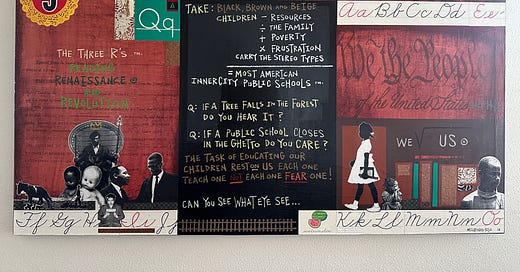 Qq
THE THREE R's ™
READING
RENAISSANCE &
REVOLUTION
Ff Gg Hh Ii Jj
TAKE: BLACK, BROWN AND BEIGE
CHILDREN - RESOURCES
÷ THE FAMILY
+ POVERTY
X FRUSTRATION
CARRY THE STEREO TYPES
= MOST AMERICAN
INNERCITY PUBLIC SCHOOLS ™
Q: IF A TREE FALLS IN THE FOREST
DO YOU HEAR IT?
Q: IF A PUBLIC SCHOOL CLOSES
IN THE GHETTO DO YOU CARE?
THE TASK OF EDUCATING OUR
CHILDREN REST ON US EACH ONE
TEACH ONE NOT EACH ONE FEAR ONE!
CAN YOU SEE WHAT EYE SEE...
Aa Bb Cc Dd Ee
We the People
of the United States
WE US
Kk Ll Mm Nn Oo